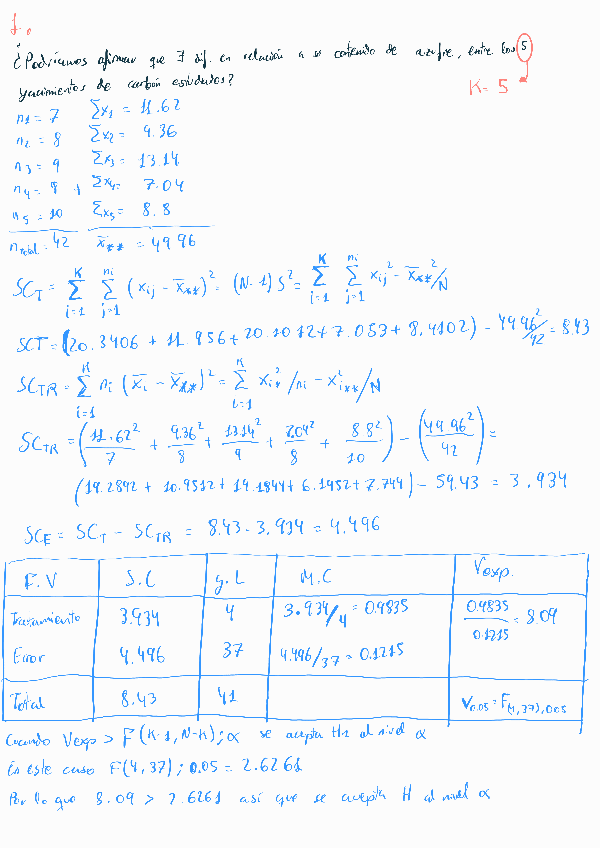 1.
¿Podríamos afirmar que ∃ dif. en relación a su contenido de azufre, entre los 5
yacimientos de carbón estudiados? K = 5
n1 = 7 Σx1 = 11.62
n2 = 8 Σx2 = 9.36
n3 = 9 Σx3 = 13.14
n4 = 8 Σx4 = 7.04
n5 = 10 Σx5 = 8.8
ntotal = 42 x̄** = 49.96
SCT = Σ(i=1, K) Σ(j=1, ni) (xij − x̄**)² = (N-1) S² = Σ(i=1, K) Σ(j=1, ni) xij² − x̄**²/N
SCT = (20.3406 + 11.956 + 20.1012 + 7.053 + 8.4102) − 49.96²/42 = 8.43
SCTR = Σ(i=1, K) ni (x̄i − x̄**)² = Σ(i=1, K) xi*²/ni − xi**²/N
SCTR = (11.62²/7 + 9.36²/8 + 13.14²/9 + 7.04²/8 + 8.8²/10) − (49.96²/42) =
(19.2892 + 10.9512 + 19.1844 + 6.1952 + 7.744) − 59.43 = 3.934
SCE = SCT − SCTR = 8.43 - 3.934 = 4.496
F.V S.C g.L M.C Vexp.
Tratamiento 3.934 4 3.934/4 = 0.9835 0.9835/0.1215 = 8.09
Error 4.496 37 4.496/37 = 0.1215
Total 8.43 41 V0.05 = F(4,37),0.05
Cuando Vexp > F(K-1, N-K); α se acepta H1 al nivel α
En este caso F(4,37); 0.05 = 2.6261
Por lo que 8.09 > 2.6261 así que se acepta H al nivel α